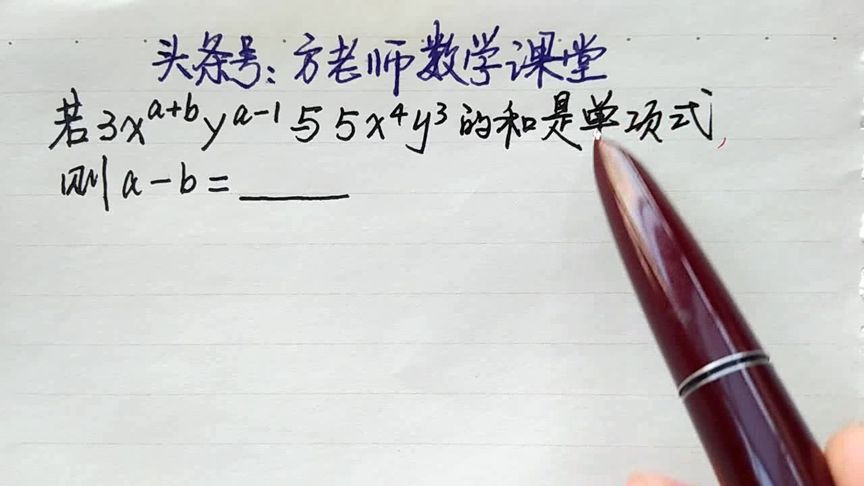 头条号：方老师数学课堂
若3x^{a+b}y^{a-1}与5x⁴y³的和是单项式，
则a-b=______